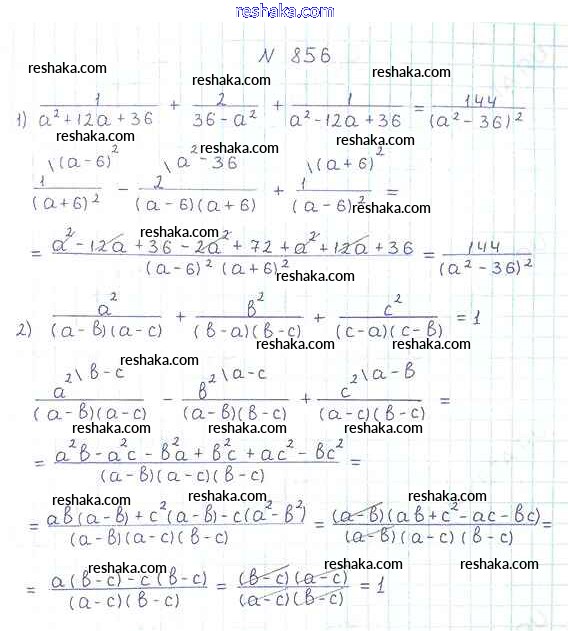 reshaka.com
N 856
reshaka.com reshaka.com
reshaka.com
1) 1/(a² + 12a + 36) + 2/(36 - a²) + 1/(a² - 12a + 36) = 144/(a² - 36)²
reshaka.com reshaka.com
1\(a-6)²/(a+6)² - 2\a²-36/((a-6)(a+6)) + 1\(a+6)²/(a-6)² =
reshaka.com
reshaka.com reshaka.com
= (a² - 12a + 36 - 2a² + 72 + a² + 12a + 36)/((a-6)²(a+6)²) = 144/(a² - 36)²
reshaka.com reshaka.com
2) a²/((a-в)(a-c)) + в²/((в-a)(в-c)) + c²/((c-a)(c-в)) = 1
reshaka.com reshaka.com
reshaka.com
a²\в-c/((a-в)(a-c)) - в²\a-c/((a-в)(в-c)) + c²\a-в/((a-c)(в-c)) =
reshaka.com reshaka.com reshaka.com
= (a²в - a²c - в²a + в²c + ac² - вc²)/((a-в)(a-c)(в-c)) =
reshaka.com reshaka.com reshaka.com
= (aв(a-в) + c²(a-в) - c(a²-в²))/((a-в)(a-c)(в-c)) = ((a-в)(aв + c² - ac - вc))/((a-в)(a-c)(в-c)) =
reshaka.com reshaka.com reshaka.com
= (a(в-c) - c(в-c))/((a-c)(в-c)) = ((в-c)(a-c))/((a-c)(в-c)) = 1
reshaka.com reshaka.com